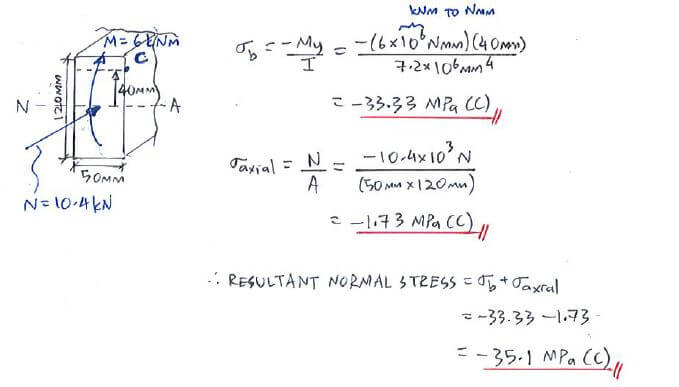 KNM TO NMM
M=6KNM
C
40MM
N
A
120MM
50MM
N=10.4KN
σb = -My/I = -(6×10⁶NMM)(40MM)/7.2×10⁶MM⁴
= -33.33 MPa (C)
σaxial = N/A = -10.4×10³N/(50MM×120MM)
= -1.73 MPa (C)
∴ RESULTANT NORMAL STRESS = σb + σaxial
= -33.33 -1.73
= -35.1 MPa (C)